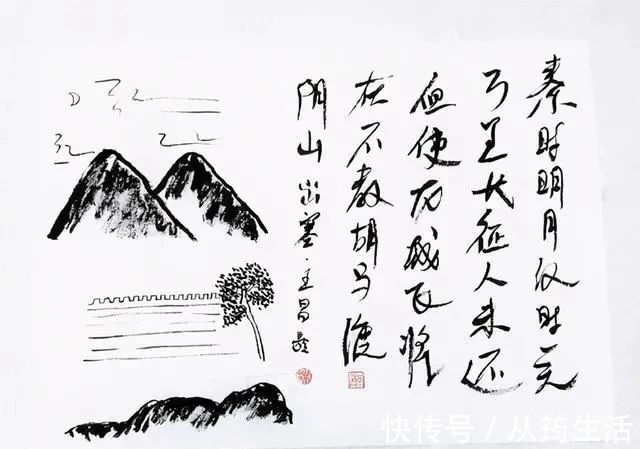 秦时明月汉时关
万里长征人未还
但使龙城飞将
在不教胡马度
阴山 出塞·王昌龄
快传号 / 从筠生活